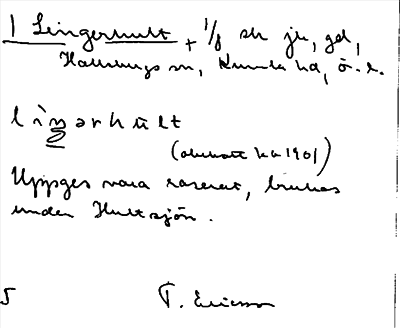 1 Lingerhult + 1/8 sk ju, gd,
Hallsbergs sn, Kumla hd, ö. l.
lìŋərhùlt
(obebott ka 1901)
Uppges vara raserat, brukas
under Hultsjön.
5 T. Ericsson